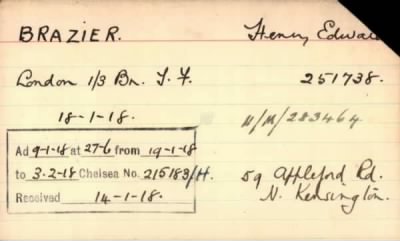 BRAZIER. Henry Edwar
London 1/3 Bn. T. F. 251738.
18-1-18. N/M/283464
Ad 9-1-18 at 27-6 from 19-1-18
to 3-2-18 Chelsea No. 215183/H. 59 Appleford Rd.
Received 14-1-18. N. Kensington.